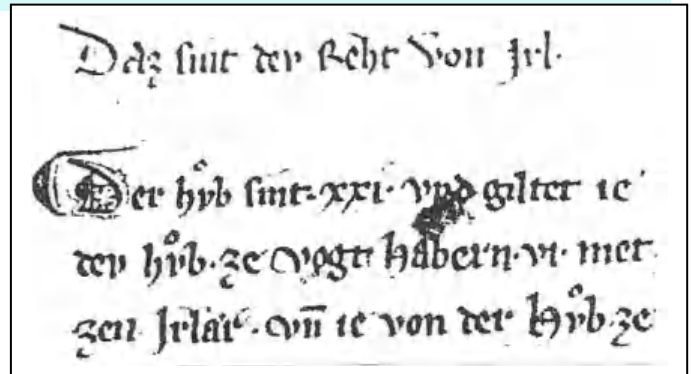 Daz sint der Reht von Irl.
Der hůb sint. xxi. vnd giltet ie
der hůb. ze vogti habern. vi. met
zen Irlær. vn̄ ie von der Hůb. ze